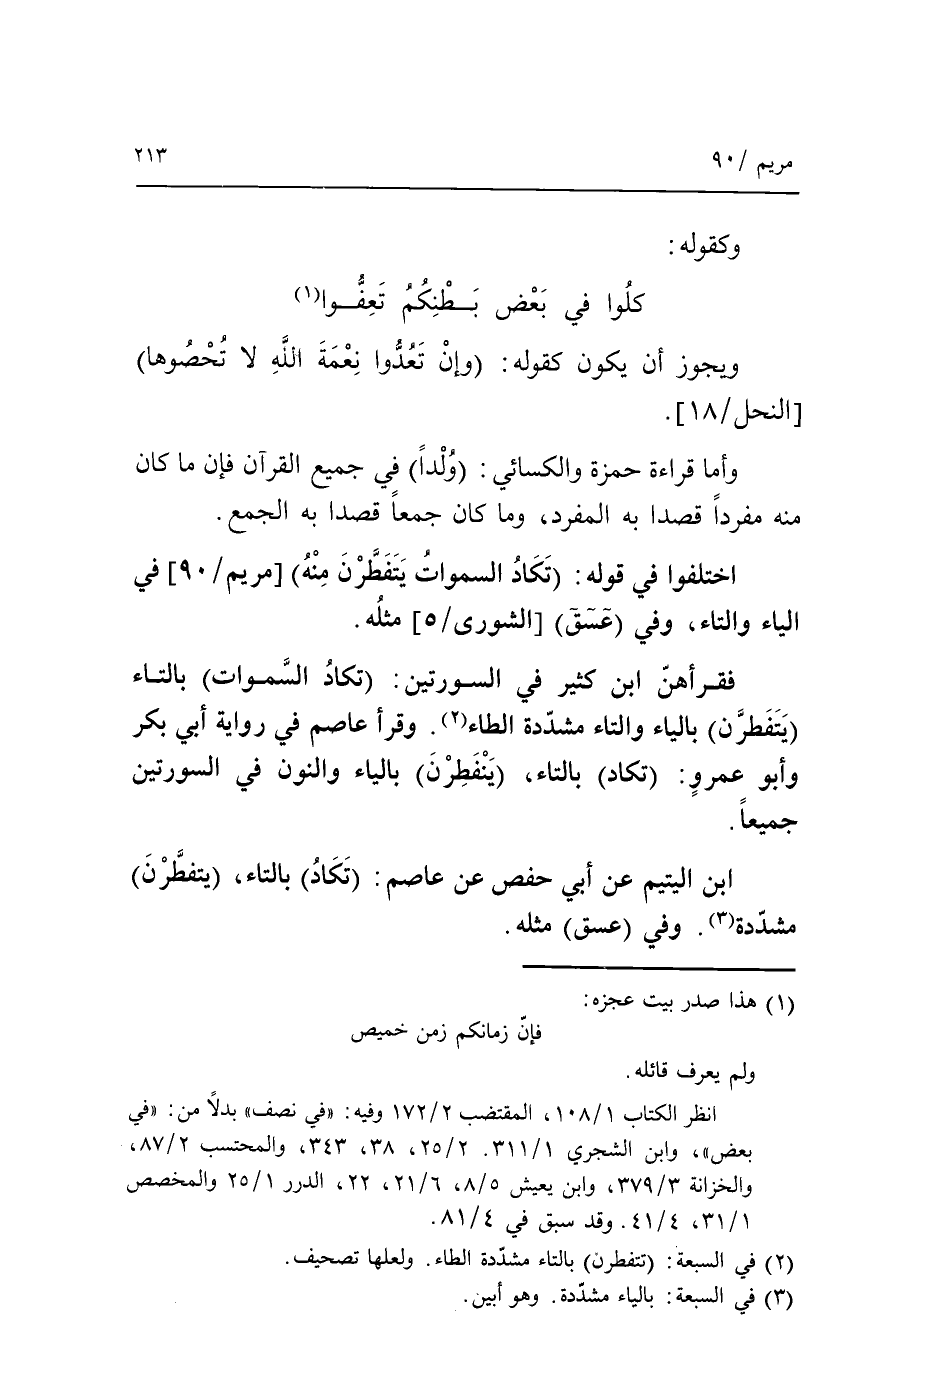 مريم /٩٠
٢١٣
وكقوله :
كلُوا في بَعْض بَــطْنِكُمُ تَعِفُّــوا(١)
ويجوز أن يكون كقوله : (وإنْ تَعُدُّوا نِعْمَةَ اللَّهِ لا تُحْصُوها)
[النحل/١٨] .
وأما قراءة حمزة والكسائي : (وُلْداً) في جميع القرآن فإن ما كان
منه مفرداً قصدا به المفرد، وما كان جمعاً قصدا به الجمع .
اختلفوا في قوله : (تَكَادُ السمواتُ يَتَفَطَّرْنَ مِنْهُ) [مريم/٩٠] في
الياء والتاء، وفي (عَسَقَ) [الشورى/٥] مثلُه .
فقــرأهنّ ابن كثير في السـورتين : (تكادُ السَّمـوات) بالتـاء
(يَتَفَطرَّن) بالياء والتاء مشدّدة الطاء(٢) . وقرأ عاصم في رواية أبي بكر
وأبو عمروٍ : (تكاد) بالتاء، (يَنْفَطِرْنَ) بالياء والنون في السورتين
جميعاً .
ابن اليتيم عن أبي حفص عن عاصم : (تَكَادُ) بالتاء، (يتفطَّرْنَ)
مشدّدة(٣) . وفي (عسق) مثله .
(١) هذا صدر بيت عجزه :
فإنّ زمانكم زمن خميص
ولم يعرف قائله .
انظر الكتاب ١٠٨/١، المقتضب ١٧٢/٢ وفيه : «في نصف» بدلاً من : «في
بعض»، وابن الشجري ٣١١/١. ٢٥/٢، ٣٨، ٣٤٣، والمحتسب ٨٧/٢،
والخزانة ٣٧٩/٣، وابن يعيش ٨/٥، ٢١/٦، ٢٢، الدرر ٢٥/١ والمخصص
٣١/١، ٤١/٤. وقد سبق في ٨١/٤.
(٢) في السبعة : (تتفطرن) بالتاء مشدّدة الطاء . ولعلها تصحيف .
(٣) في السبعة : بالياء مشدّدة . وهو أبين .